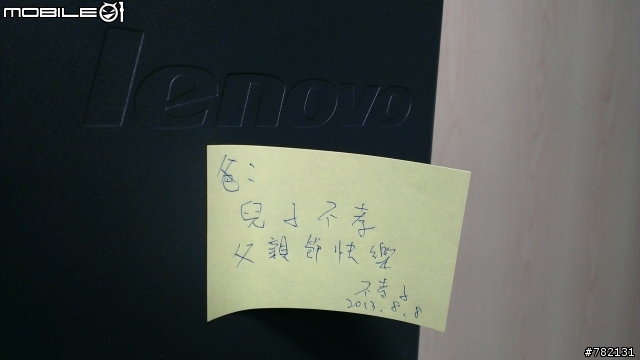 MOBILE01
lenovo
爸：
兒子不孝
父親節快樂
不孝子
2013.8.8
#782131